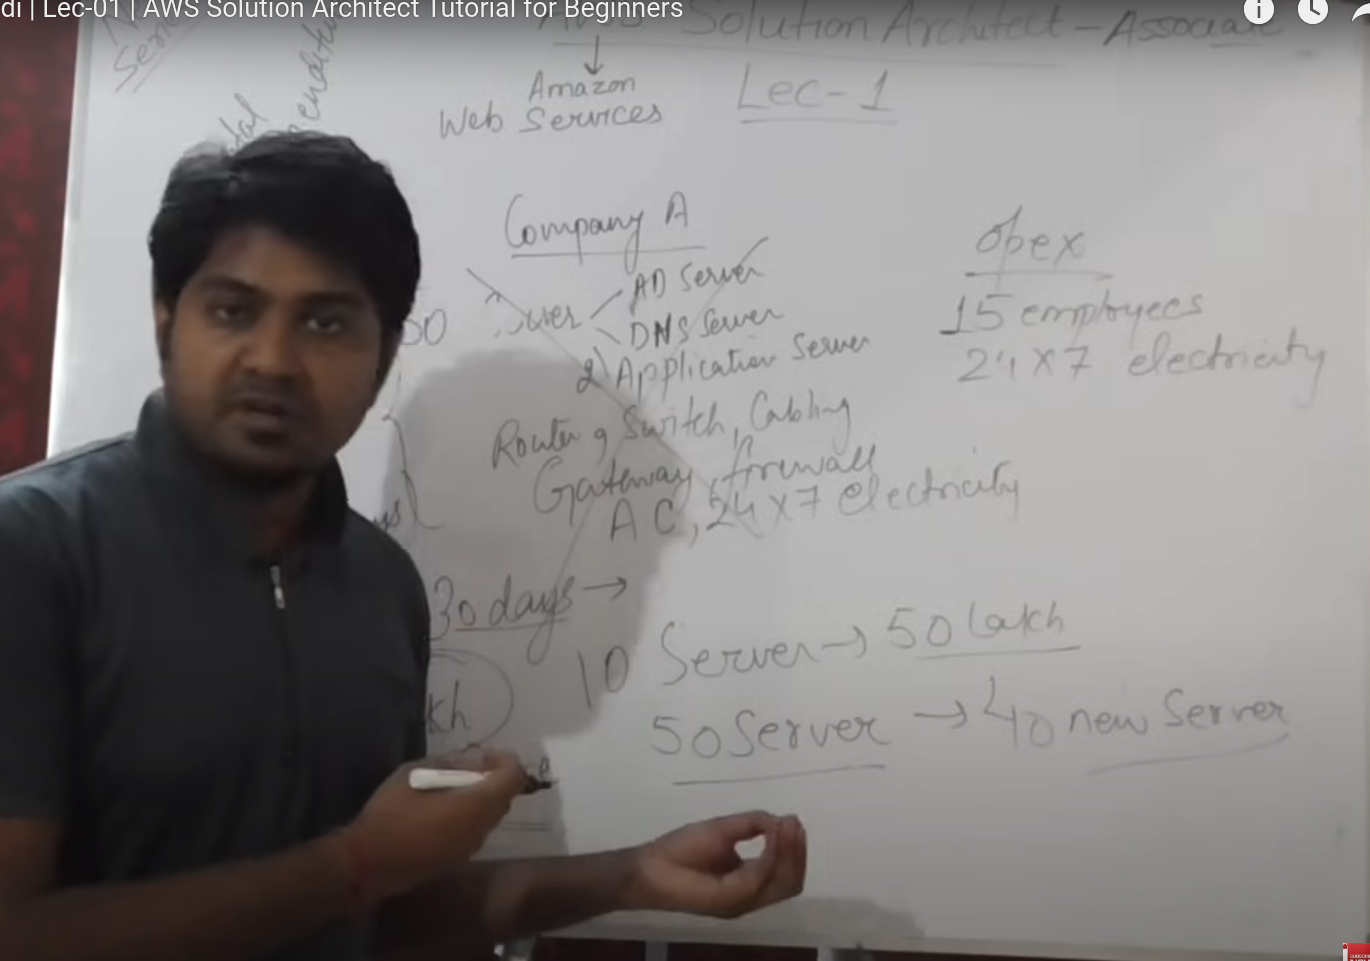 di | Lec-01 | AWS Solution Architect Tutorial for Beginners
AWS Solution Architect - Associate
Amazon
Web Services
Lec-1
Company A
AD Server
DNS Server
2) Application Server
Router, Switch, Cabling
Gateway, firewall
AC, 24x7 electricity
opex
15 employees
24x7 electricity
30 days →
10 Server → 50 lakh
50 Server → 40 new Server